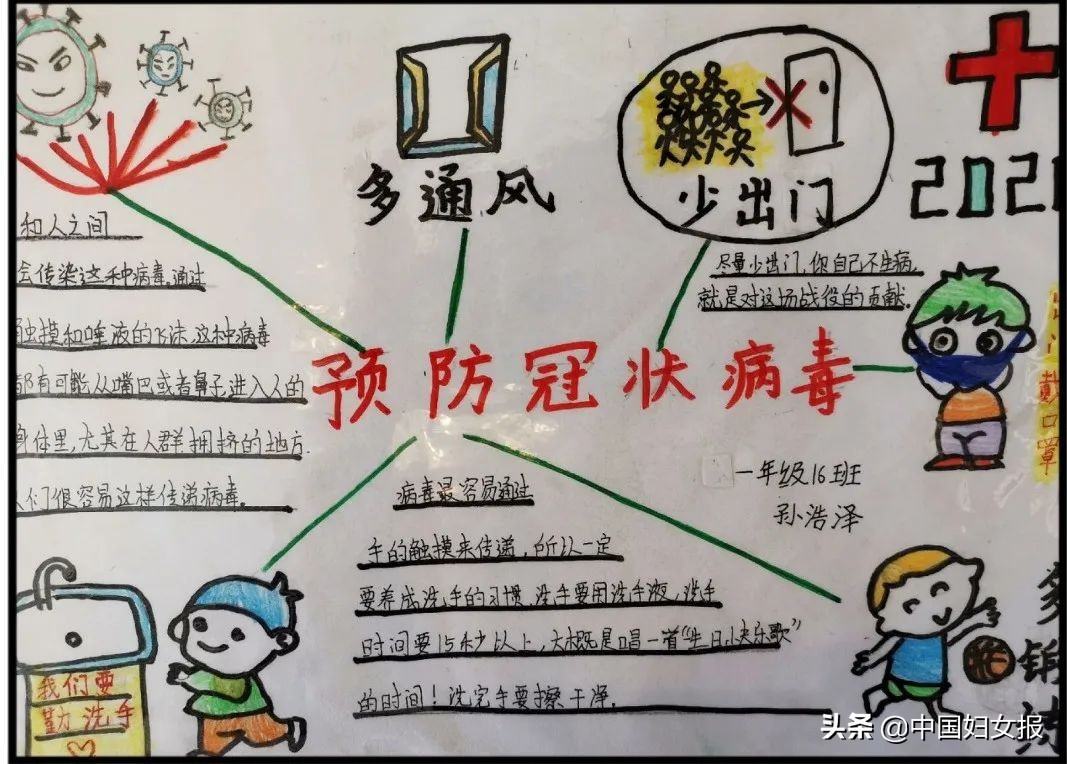 多通风
少出门
2020
和人之间
会传染这种病毒。通过
触摸和唾液的飞沫,这种病毒
都有可能从嘴巴或者鼻子,进入人的
身体里,尤其在人群拥挤的地方.
人们很容易这样传递病毒。
尽量少出门,你自己不生病,
就是对这场战役的贡献.
预防冠状病毒
出门戴口罩
一年级16班
孙浩泽
病毒最容易通过
手的触摸来传递,所以一定
要养成洗手的习惯,洗手要用洗手液,洗手
时间要15秒以上,大概是唱一首“生日快乐歌”
的时间!洗完手要擦干净.
我们要
勤洗手
多锻
头条 @中国妇女报